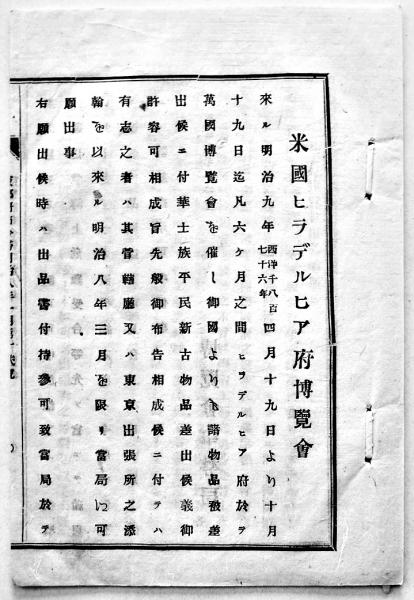 米國ヒラデルヒア府博覽會
來ル明治九年西洋千八百七十六年四月十九日より十月
十九日迄凡六ケ月之間ヒラデルヒア府於テ
萬國博覽會を催し御國よりも諸物品被差
出候ニ付華士族平民新古物品差出候義御
許容可相成旨先般御布告相成候ニ付テハ
有志之者ハ其管轄廳又ハ東京出張所之添
翰を以來ル明治八年三月を限リ當局に可
願出事
右願出候時ハ出品書付持參可致當局於テ